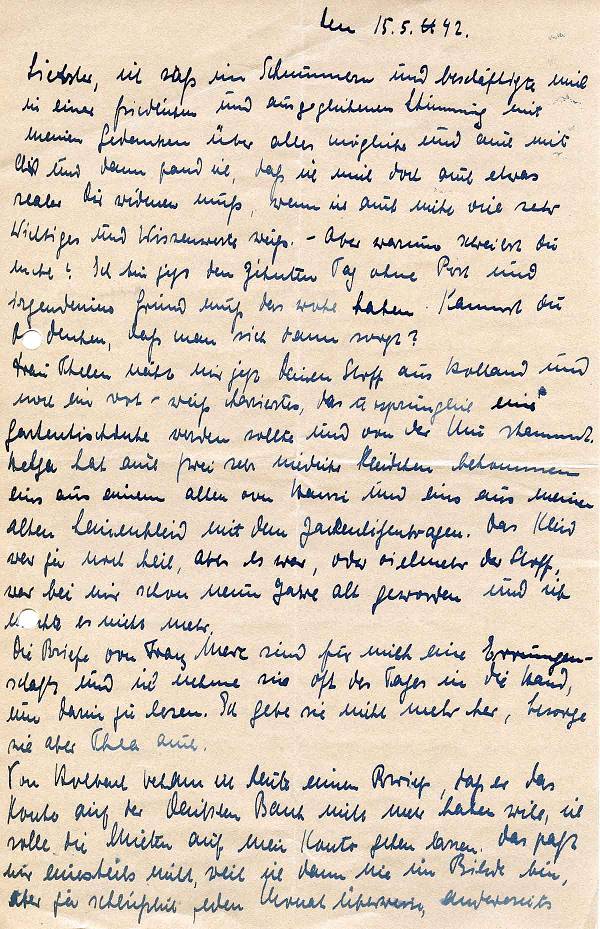 den 15.5.42.
Liebster, ich saß im Schummern und beschäftigte mich
in einer friedlichen und ausgeglichenen Stimmung mit
meinen Gedanken über alles mögliche und auch mit
Dir und dann fand ich, daß ich mich doch auch etwas
Dir widmen muß, wenn ich auch nicht viel sehr
Wichtiges und Wissenwertes weiß. - Aber warum schreibst Du
nicht? Ich bin jetzt den zehnten Tag ohne Post und
irgendeinen Grund muß das wohl haben. Kannst Du
denken, daß man sich dann sorgt?
Frau Thelen näht mir jetzt Deinen Stoff aus Holland und
noch ein rot-weiß kariertes, das ursprünglich eine
Gartentischdecke werden sollte und von der stammt.
Helga hat auch zwei sehr niedliche Kleidchen bekommen
eins aus einem alten von Hansi und eins aus meinem
alten Leinenkleid mit dem. Das Kleid
war zwar noch heil, aber es war, oder vielmehr der Stoff,
war bei mir schon neun Jahre alt geworden und ich
mochte es nicht mehr.
Die Briefe von Franz Merz sind für mich eine Errungen-
schaft und ich nehme sie oft des Tages in die Hand,
um darin zu lesen. Ich gebe sie nicht mehr her, besorge
sie aber Thea auch.
Von bekam ich heute einen Brief, daß er das
Konto auf der Deutschen Bank nicht mehr haben will, ich
solle die Mieten auf mein Konto gehen lassen. Das paßt
mir einesteils nicht, weil ich dann nie im Bilde bin,
aber jeden Monat überweise, andererseits